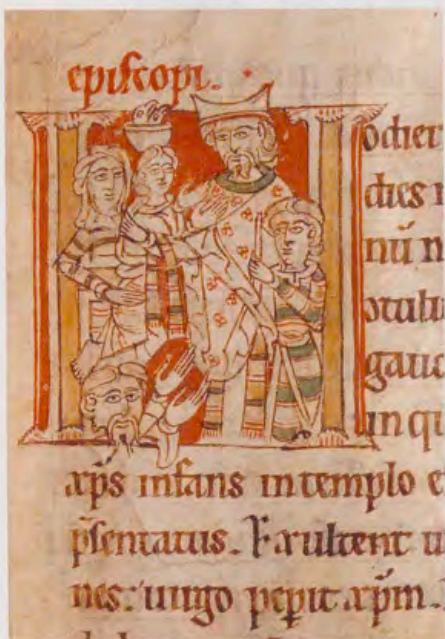 episcopi.
Hodier
dies
nū n
gaud
in qu
xp̄s infans in templo e
p̄sentatus. Exultent u
nes: uirgo peperit xp̄m.